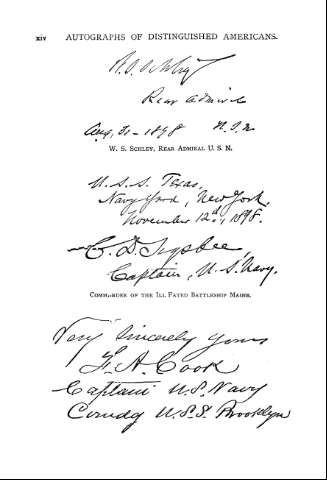 xiv AUTOGRAPHS OF DISTINGUISHED AMERICANS.
W. S. Schley
Rear Admiral
Aug. 31- 1898 U.S.N.
W. S. SCHLEY, REAR ADMIRAL U. S. N.
U. S. S. Texas,
Navy Yard, New York,
November 12d, 1898.
C. D. Sigsbee,
Captain, U. S. Navy.
COMMANDER OF THE ILL FATED BATTLESHIP MAINE.
Very Sincerely Yours
F. A. Cook
Captain U.S. Navy
Comdg U.S.S. Brooklyn